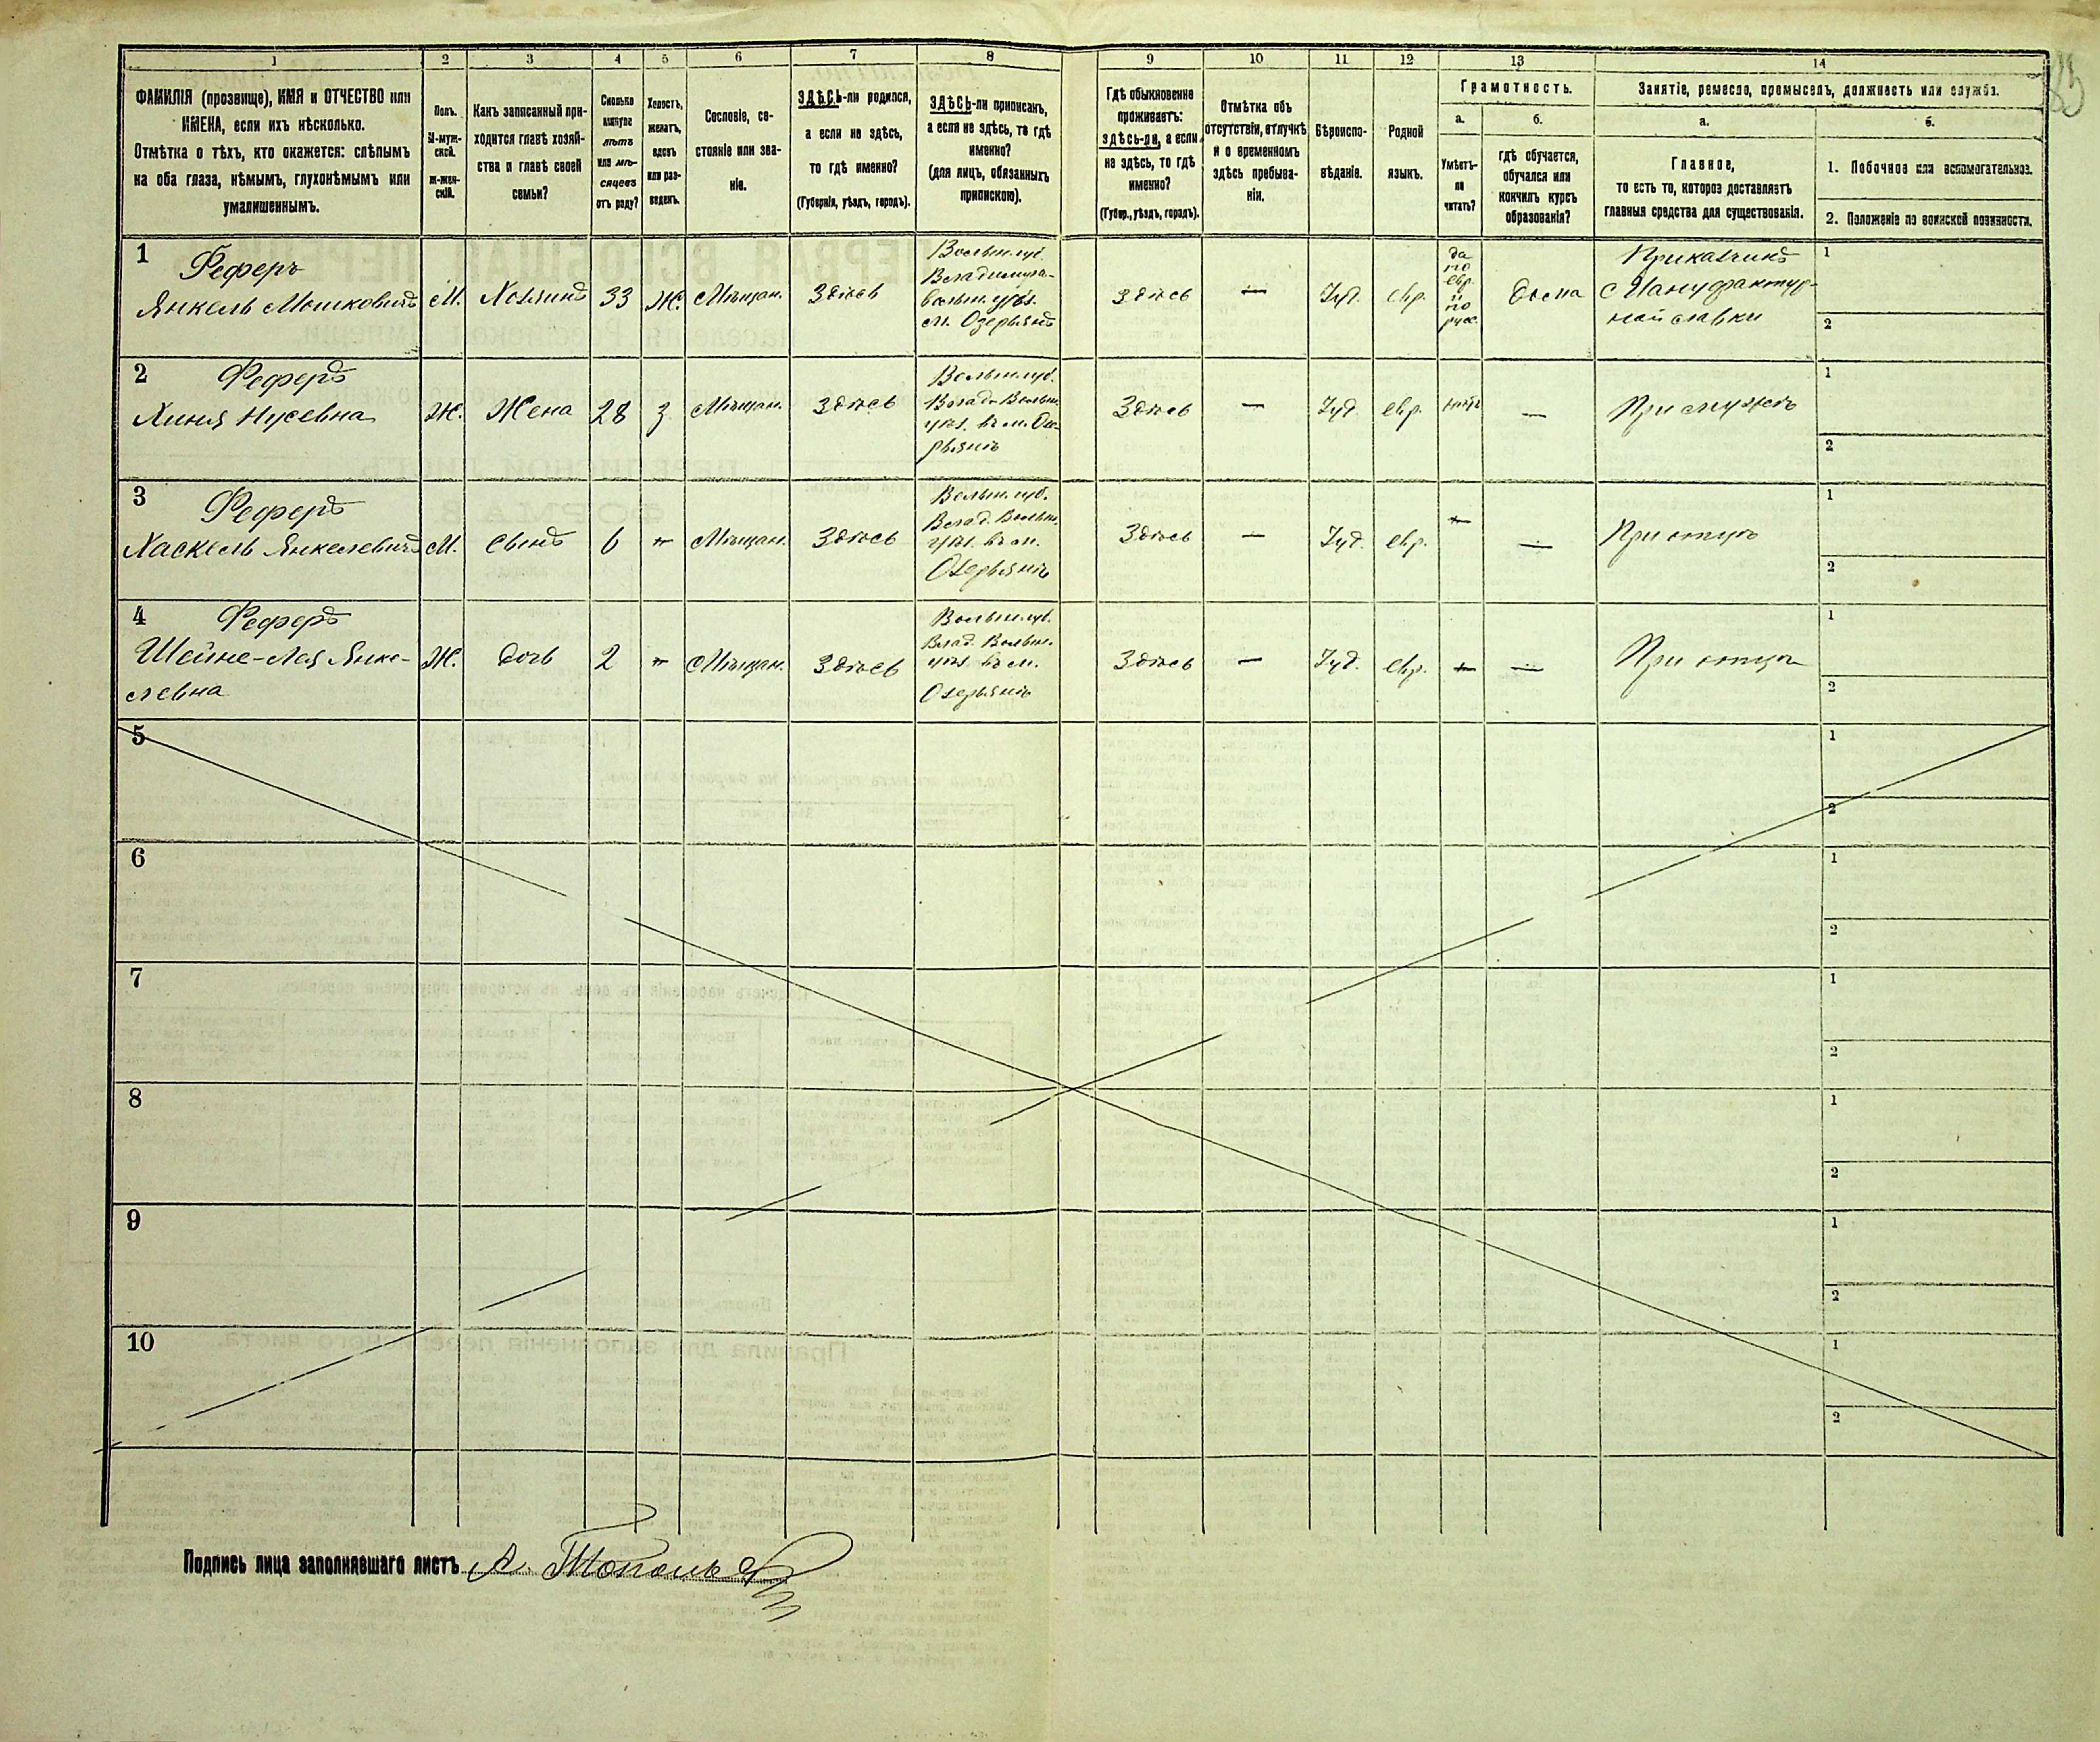 1 2 3 4 5 6 7 8 9 10 11 12 13 14
ФАМИЛІЯ (прозвище), ИМЯ и ОТЧЕСТВО или
ИМЕНА, если ихъ нѣсколько.
Отмѣтка о тѣхъ, кто окажется: слѣпымъ
на оба глаза, нѣмымъ, глухонѣмымъ или
умалишеннымъ.
Полъ.
М-муж-
ской.
Ж-жен-
скій.
Какъ записанный при-
ходится главѣ хозяй-
ства и главѣ своей
семьи?
Сколько
минуло
лѣтъ
или мѣ-
сяцевъ
отъ роду?
Холостъ,
женатъ,
вдовъ
или раз-
веденъ.
Сословіе, со-
стояніе или зва-
ніе.
ЗДѢСЬ-ли родился,
а если не здѣсь,
то гдѣ именно?
(Губернія, уѣздъ, городъ).
ЗДѢСЬ-ли приписанъ,
а если не здѣсь, то гдѣ
именно?
(для лицъ, обязанныхъ
припискою).
Гдѣ обыкновенно
проживаетъ:
здѣсь-ли, а если
не здѣсь, то гдѣ
именно?
(Губер., уѣздъ, городъ).
Отмѣтка объ
отсутствіи, отлучкѣ
и о временномъ
здѣсь пребыва-
ніи.
Вѣроиспо-
вѣданіе.
Родной
языкъ.
Грамотность.
а.
Умѣетъ-
ли
читать?
б.
гдѣ обучается,
обучался или
кончилъ курсъ
образованія?
Занятіе, ремесло, промыселъ, должность или служба.
а.
Главное,
то есть то, которое доставляетъ
главныя средства для существованія.
б.
1. Побочное или вспомогательное.
2. Положеніе по воинской повинности.
1
Феферъ
Янкель Мошковичъ
М.
Хозяинъ
33
Ж.
Мѣщан.
Здѣсь
Волын. губ.
Владимира-
волын. уѣз.
м. Озерянъ
Здѣсь
—
Іуд.
евр.
да
по
евр.
и
по
русс.
дома
Приказчикъ
с Мануфактур-
ной лавки
1
2
2
Феферъ
Хиня Нусевна
Ж.
Жена
28
З.
Мѣщан.
Здѣсь
Волын. губ.
Влад. Волын.
уѣз. въ м. Озе-
рянѣ
Здѣсь
—
Іуд.
евр.
нѣтъ
—
При мужѣ
1
2
3
Феферъ
Хаскель Янкелевичъ
М.
Сынъ
6
"
Мѣщан.
Здѣсь
Волын. губ.
Влад. Волын.
уѣз. въ м.
Озерянѣ
Здѣсь
—
Іуд.
евр.
—
—
При отцѣ
1
2
4
Феферъ
Шейне-Лея Янке-
левна
Ж.
дочь
2
"
Мѣщан.
Здѣсь
Волын. губ.
Влад. Волын.
уѣз. въ м.
Озерянѣ
Здѣсь
—
Іуд.
евр.
—
—
При отцѣ
1
2
5
1
2
6
1
2
7
1
2
8
1
2
9
1
2
10
1
2
Подпись лица заполнявшаго листъ А.